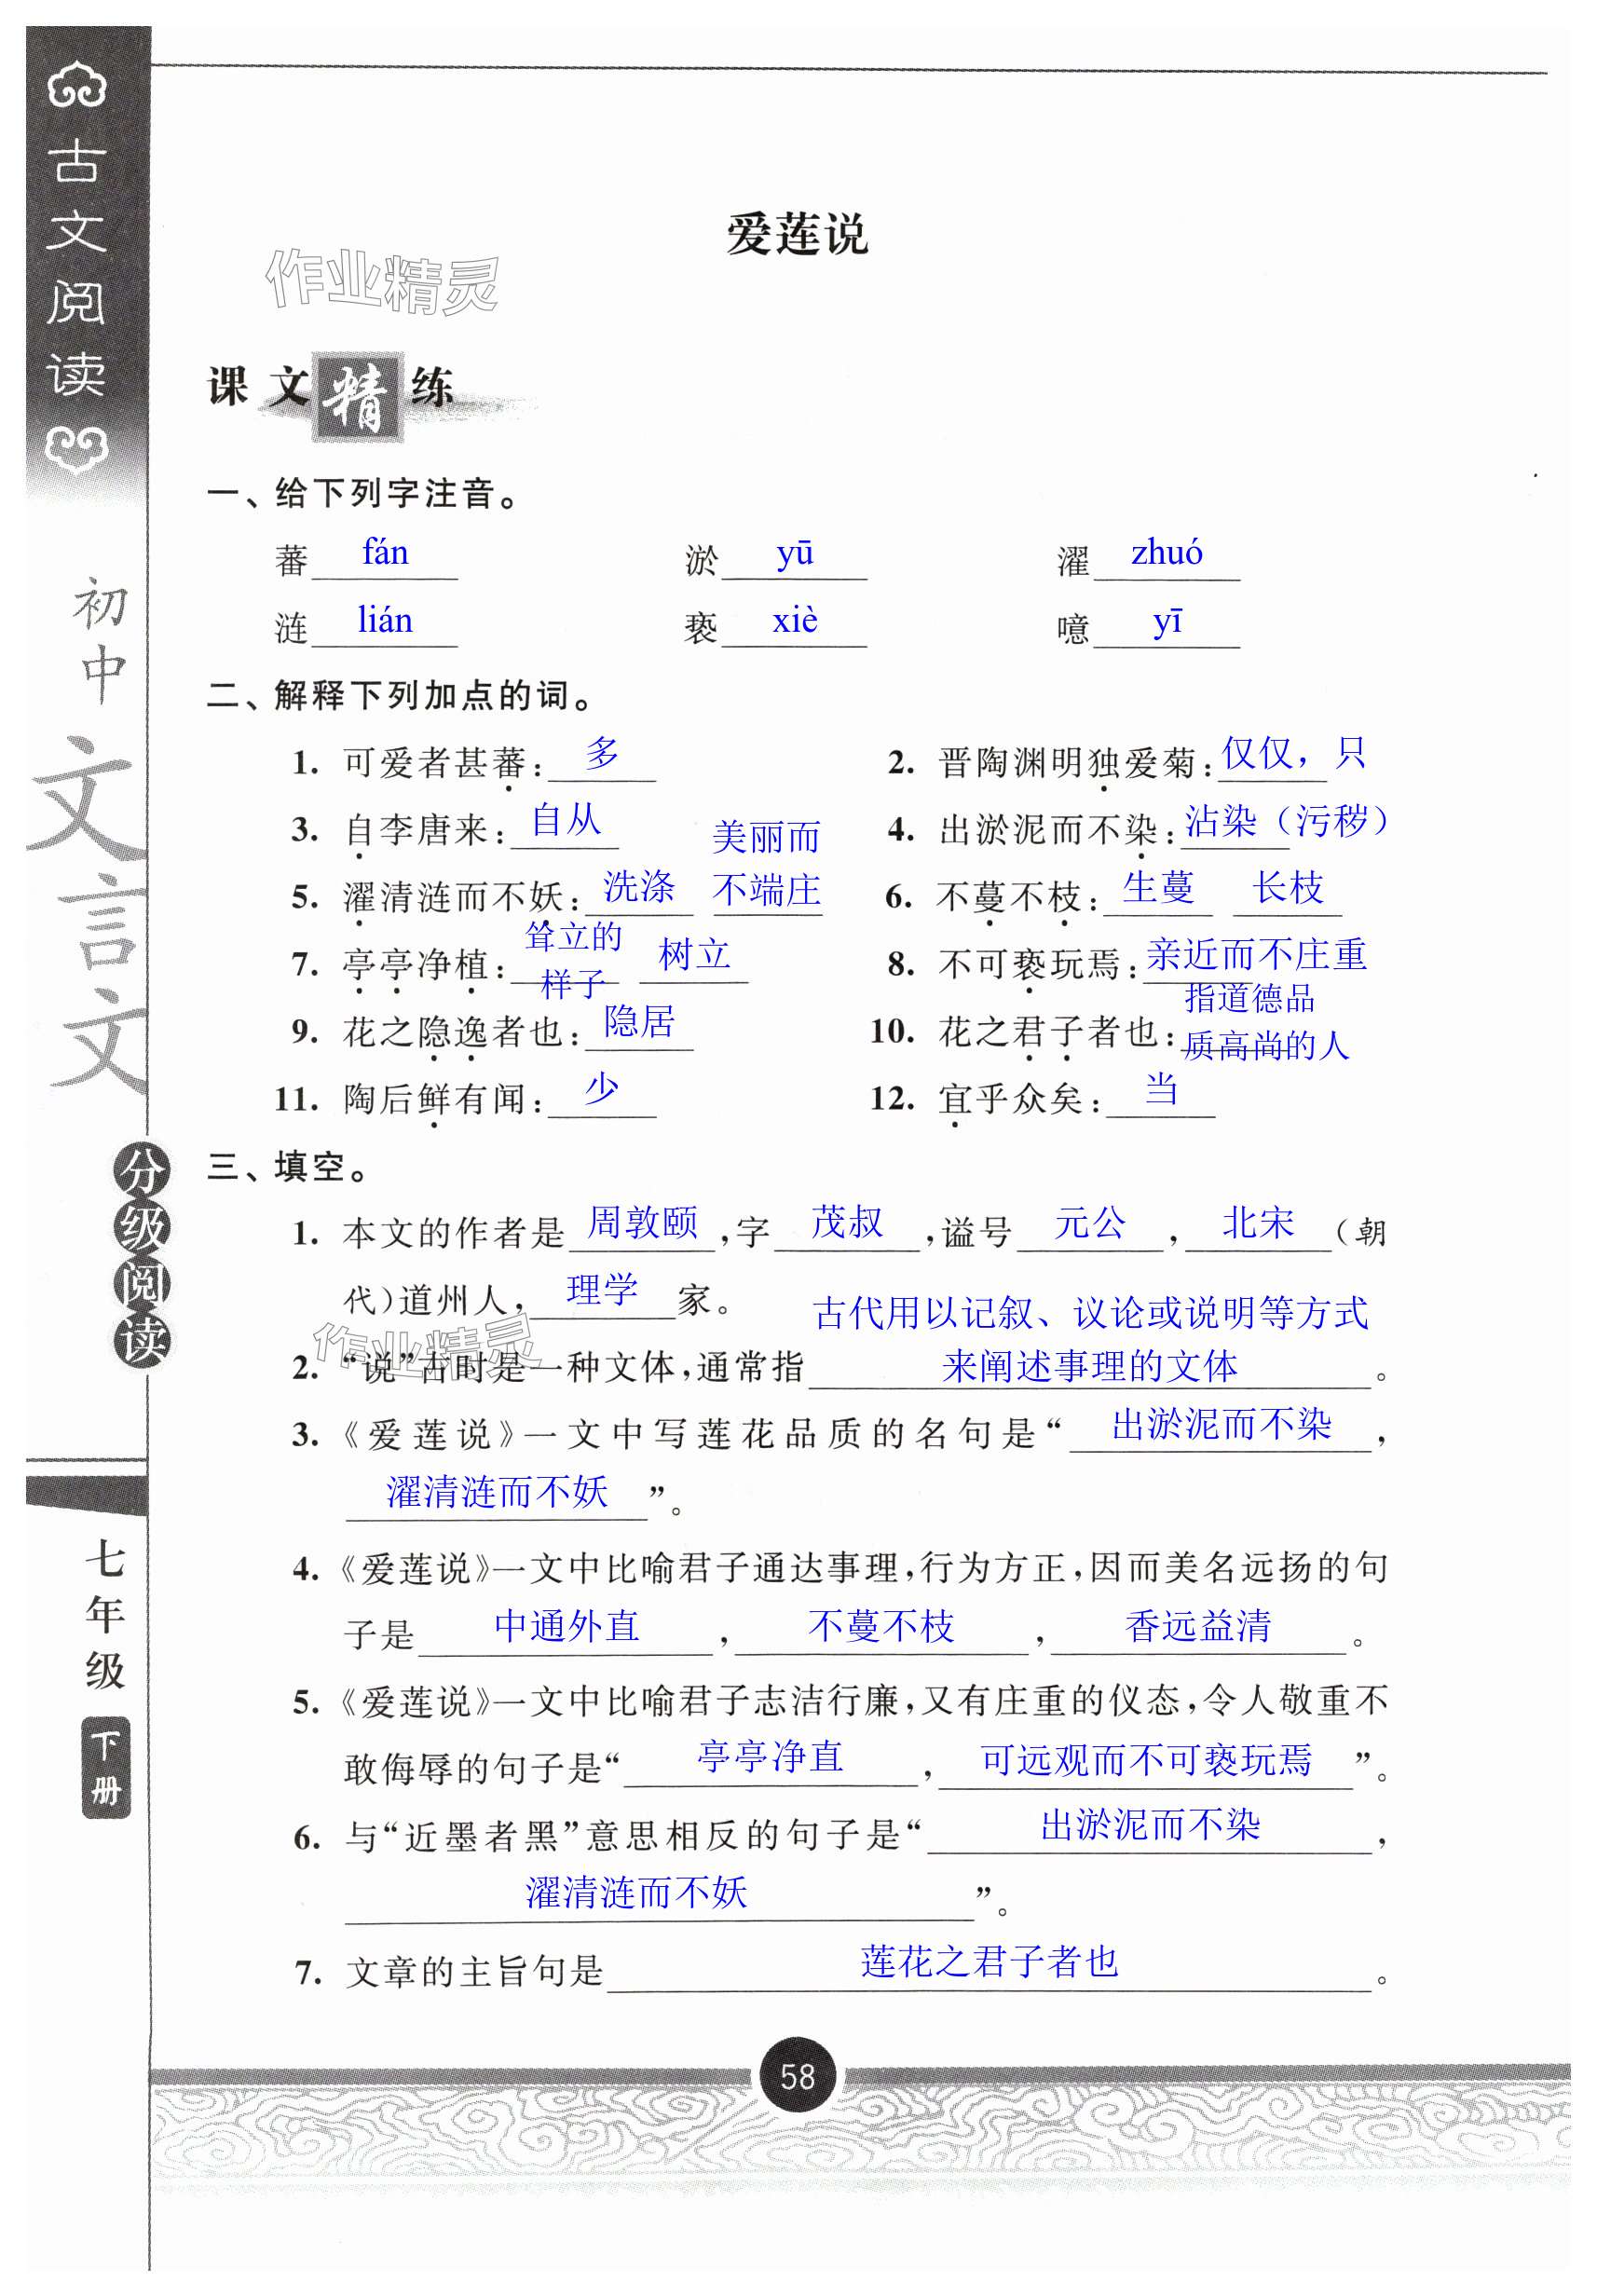 古文阅读
初中
文言文
分级阅读
七年级
下册
爱莲说
作业精灵
课文精练
一、给下列字注音。
蕃 fán 淤 yū 濯 zhuó
涟 lián 亵 xiè 噫 yī
二、解释下列加点的词。
1. 可爱者甚蕃： 多 2. 晋陶渊明独爱菊： 仅仅，只
3. 自李唐来： 自从 4. 出淤泥而不染： 沾染（污秽）
5. 濯清涟而不妖： 洗涤 美丽而不端庄 6. 不蔓不枝： 生蔓 长枝
7. 亭亭净植： 耸立的样子 树立 8. 不可亵玩焉： 亲近而不庄重
9. 花之隐逸者也： 隐居 10. 花之君子者也： 指道德品质高尚的人
11. 陶后鲜有闻： 少 12. 宜乎众矣： 当
三、填空。
1. 本文的作者是 周敦颐 ，字 茂叔 ，谥号 元公 ， 北宋 （朝
代）道州人， 理学 家。
古代用以记叙、议论或说明等方式
作业精灵
2. “说”古时是一种文体，通常指 来阐述事理的文体 。
3. 《爱莲说》一文中写莲花品质的名句是“ 出淤泥而不染 ，
濯清涟而不妖 ”。
4. 《爱莲说》一文中比喻君子通达事理，行为方正，因而美名远扬的句
子是 中通外直 ， 不蔓不枝 ， 香远益清 。
5. 《爱莲说》一文中比喻君子志洁行廉，又有庄重的仪态，令人敬重不
敢侮辱的句子是“ 亭亭净直 ， 可远观而不可亵玩焉 ”。
6. 与“近墨者黑”意思相反的句子是“ 出淤泥而不染 ，
濯清涟而不妖 ”。
7. 文章的主旨句是 莲花之君子者也 。
58